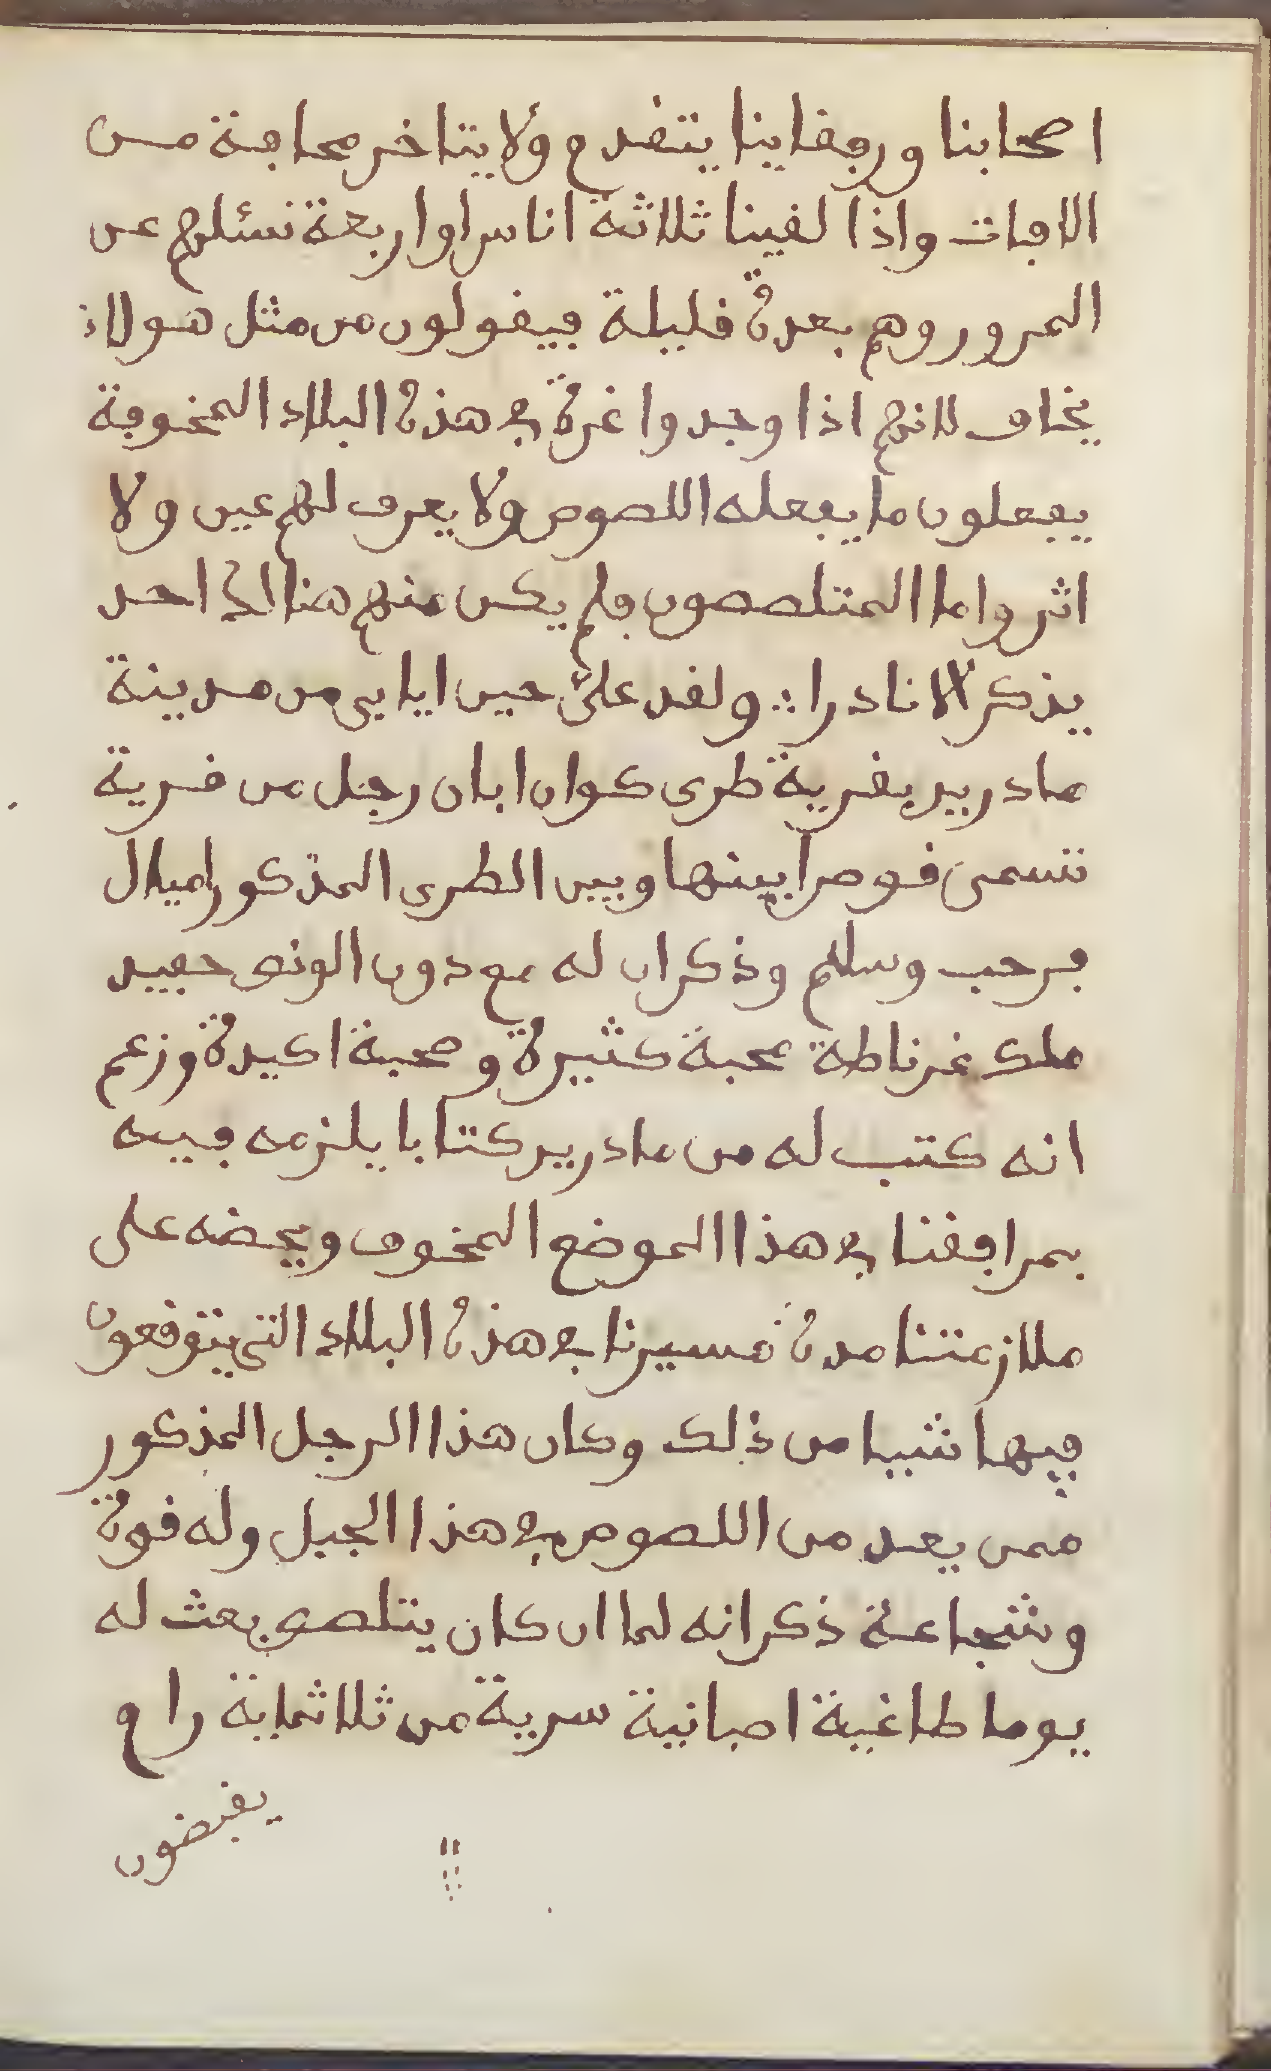 اصحابنا ورفقاينا يتقدم ولا يتاخر مخافة من
الافات واذا لقينا ثلاثة اناس او اربعة نسئلهم عن
المرور وهم بعدة قليلة فيقولون من مثل هولاء
يخاف لانهم اذا وجدوا غرة في هذه البلاد المخوفة
يفعلون ما يفعله اللصوص ولا يعرف لهم عين ولا
اثر واما المتلصصون فلم يكن منهم هنالك احد
يذكر الا نادرا ∴ ولقد على حين ايابي من مدينة
مادريد بقرية طرى كوان ابان رجل من قرية
تسمى قوصرا بينها وبين الطرى المذكور اميال
فرحب وسلم وذكر ان له مع دون الونص حفيد
ملك غرناطة محبة كثيرة وصحبة اكيدة وزعم
انه كتب له من مادريد كتابا يلزمه فيه
بمرافقتنا في هذا الموضع المخوف ويحضه على
ملازمتنا مدة مسيرنا في هذه البلاد التي يتوقعون
فيها شيا من ذلك وكان هذا الرجل المذكور
ممن يعد من اللصوص في هذا الجبل وله قوة
وشجاعة ذكر انه لما ان كان يتلصص بعث له
يوما طاغية اصبانية سرية من ثلاثماية رام
يقبضون